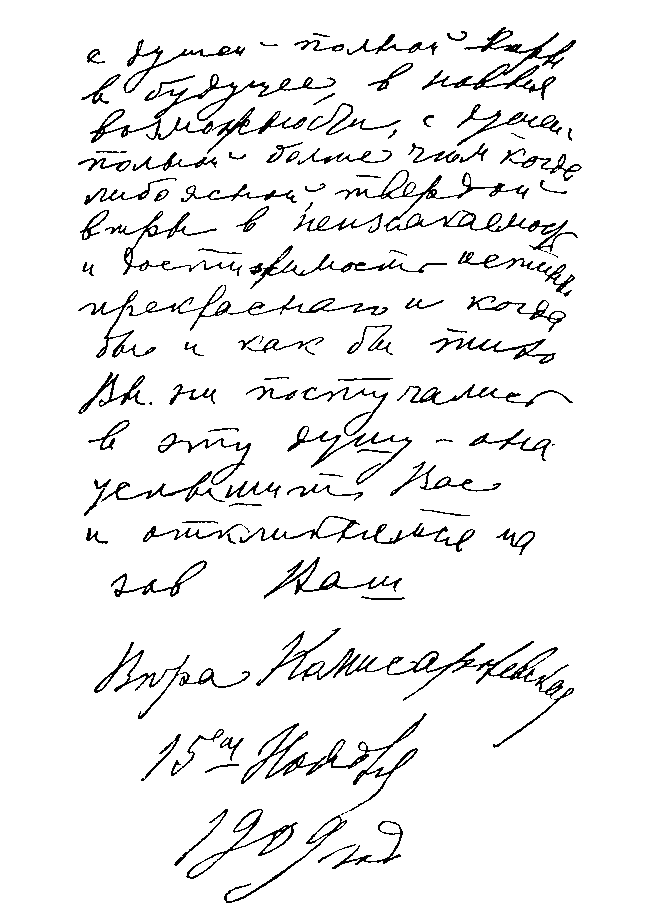 с душой — полной вѣры
в будущее, в новыя
возможности, с душой,
полной более чѣм когда
либо ясной, твердой
вѣры в неизсякаемость
и достижимость истинно
прекраснаго и когда
бы и как бы тихо
Вы ни постучались
в эту душу — она
услышит Вас
и откликнется на
зов Ваш
Вѣра Коммисаржевская
15ⁿ Ноября
1909 год